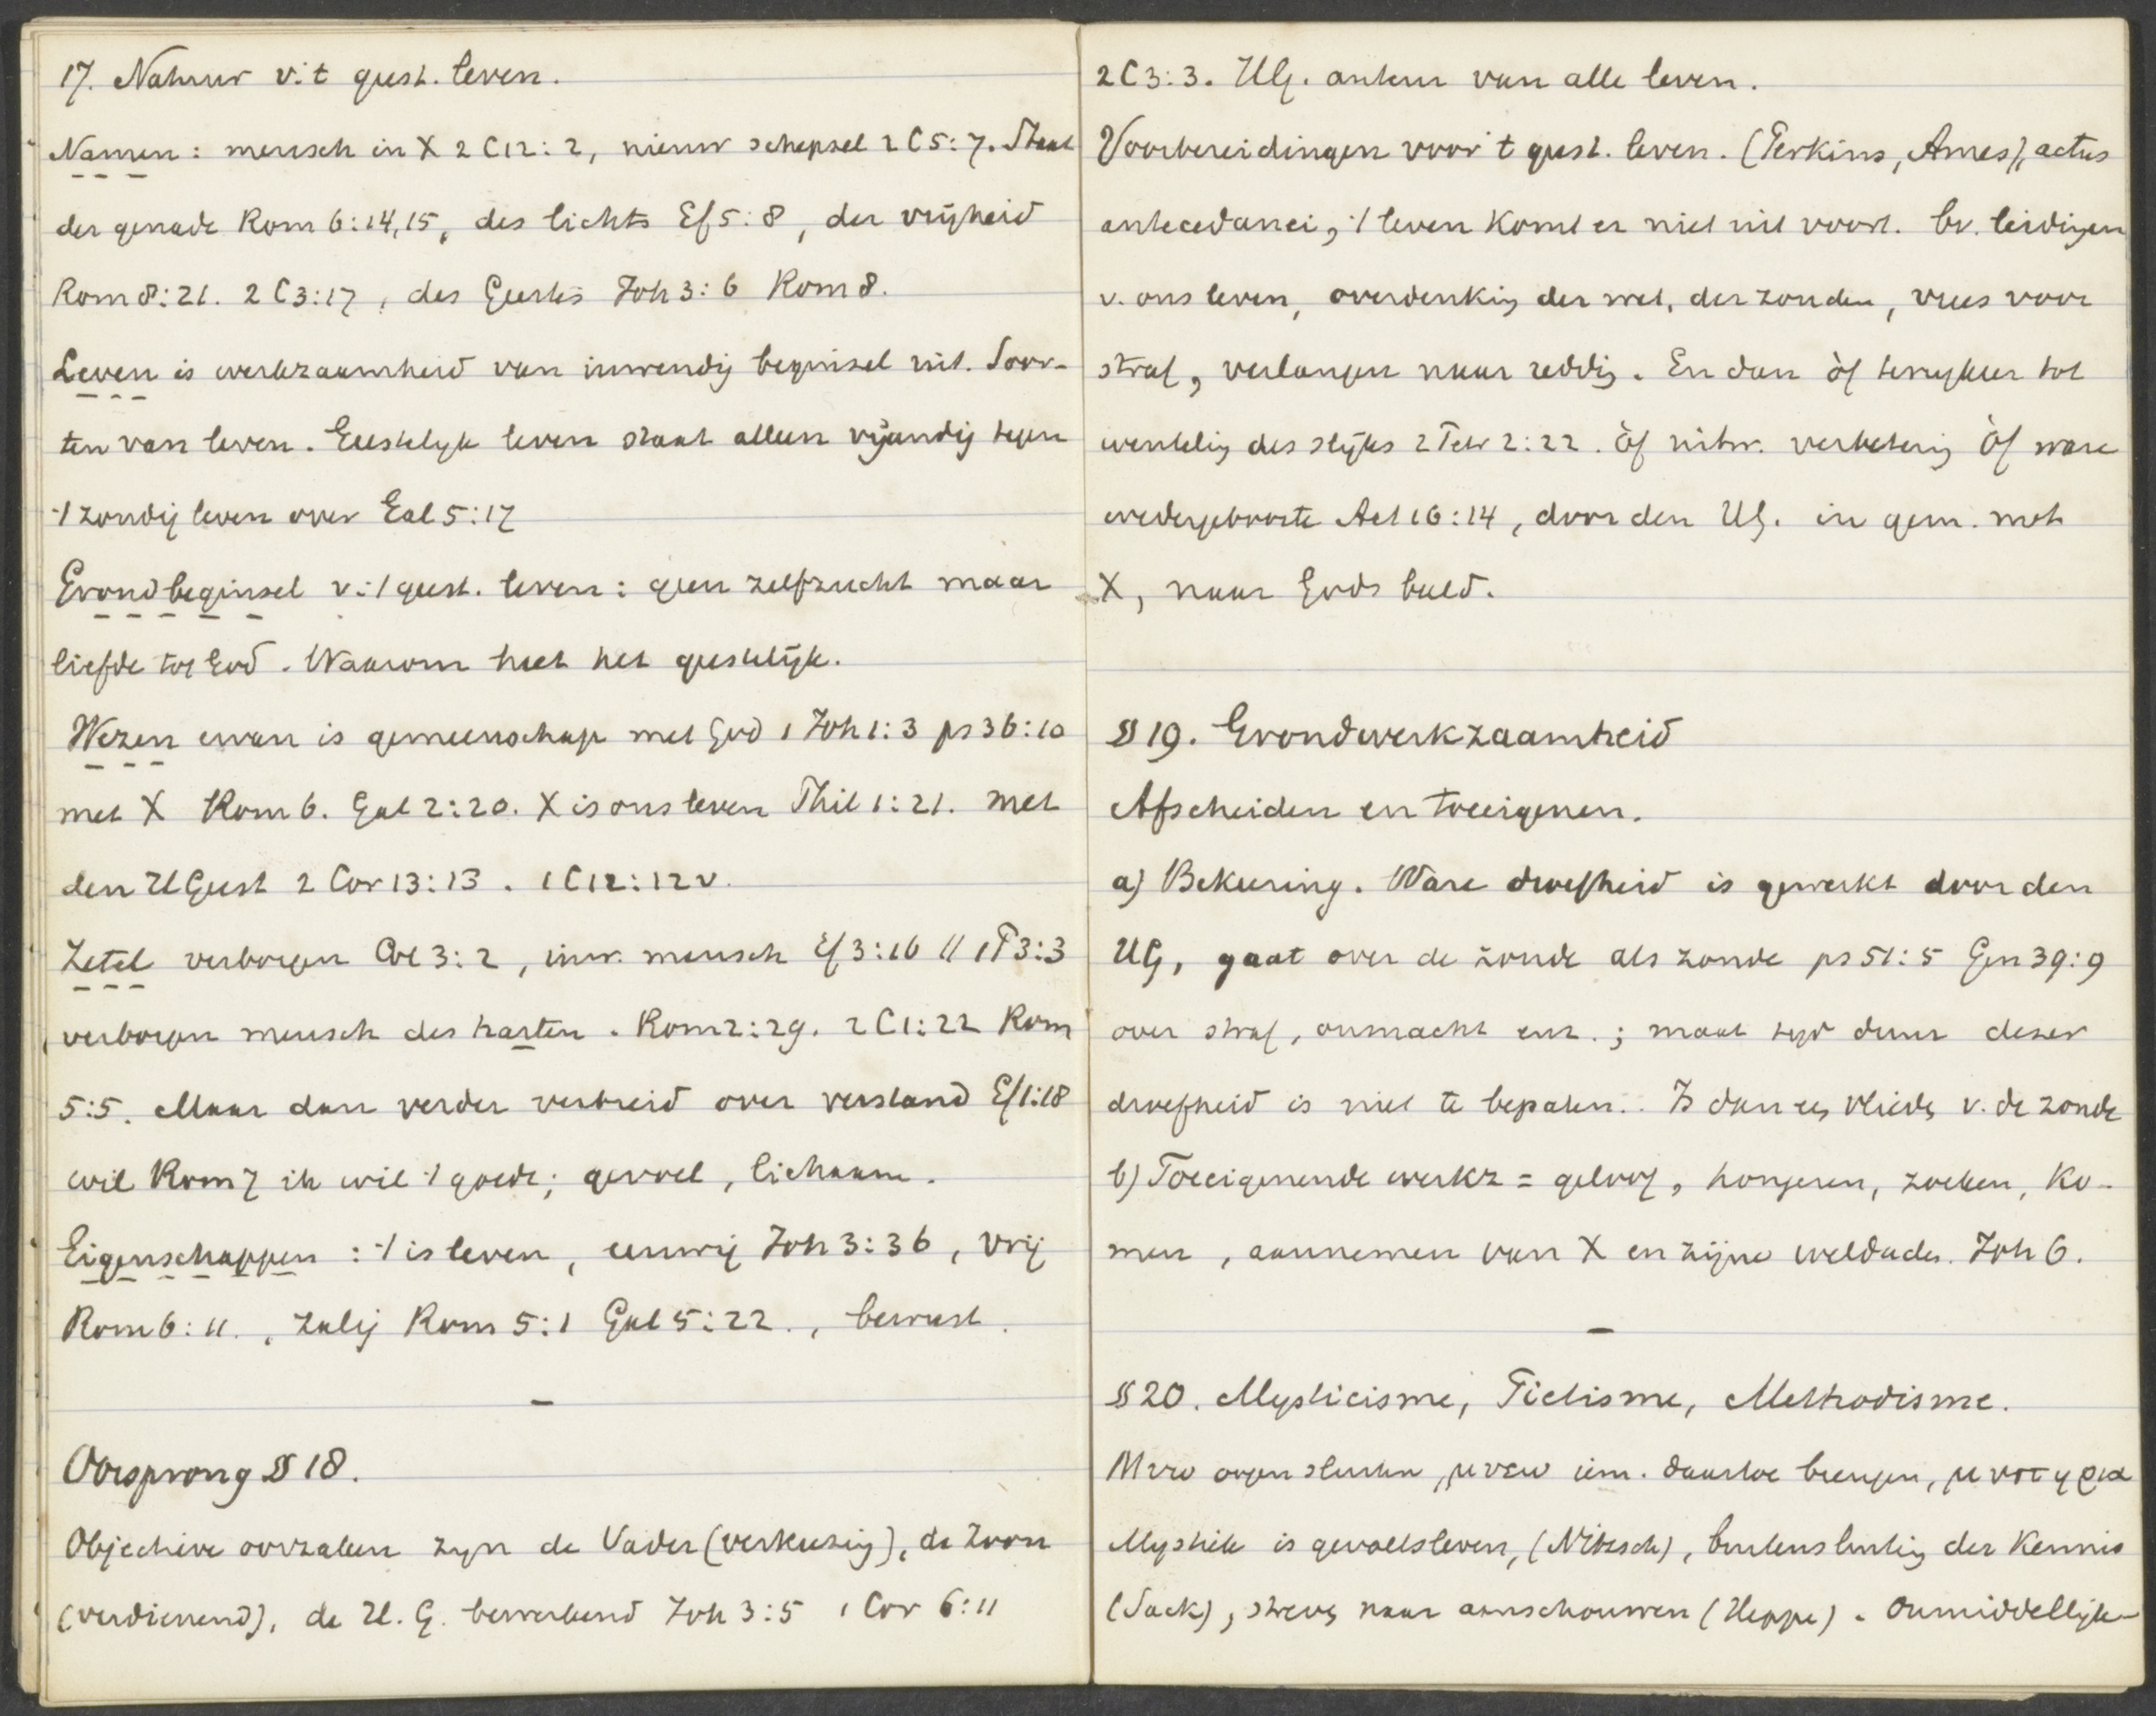 17. Natuur v. 't geest. leven.
Namen: mensch in X 2 C 12:2, nieuw schepsel 2 C 5:7. Staat
der genade Rom 6:14,15, des lichts Ef 5:8, der vrijheid
Rom 8:21. 2 C 3:17, des Geestes Joh 3:6 Rom 8.
Leven is werkzaamheid van inwendig beginsel uit. Soor-
ten van leven. Geestelijk leven staat alleen vijandig tegen
't zondig leven over Gal 5:17
Grondbeginsel v. 't geest. leven: geen zelfzucht maar
liefde tot God. Waarom heet het geestelijk.
Wezen ervan is gemeenschap met God 1 Joh 1:3 ps 36:10
met X Rom 6. Gal 2:20. X is ons leven Phil 1:21. met
den HGeest 2 Cor 13:13. 1 C 12:12 v.
Zetel verborgen Col 3:2, inw. mensch Ef 3:16 // 1 P 3:3
verborgen mensch des harten. Rom 2:29. 2 C 1:22 Rom
5:5. Maar dan verder verbreid over verstand Ef 1:18
wil Rom 7 ik wil 't goede; gevoel, lichaam.
Eigenschappen: 't is leven, eeuwig Joh 3:36, vrij
Rom 6:11., zalig Rom 5:1 Gal 5:22., bewust.
–
Oorsprong § 18.
Objectieve oorzaken zijn de Vader (verkiezing), de Zoon
(verdienend), de H. G. bewerkend Joh 3:5 1 Cor 6:11
2 C 3:3. HG. auteur van alle leven.
Voorbereidingen voor 't geest. leven. (Perkins, Ames), actus
antecedanei, 't leven komt er niet uit voort. bv. leidingen
v. ons leven, overdenking der wet, der zonden, vrees voor
straf, verlangen naar redding. En dan òf terugkeer tot
wenteling des slijks 2 Petr 2:22. òf uitw. verbetering òf ware
wedergeboorte Act 16:14, door den HG. in gem. met
X, naar Gods beeld.
§ 19. Grondwerkzaamheid
Afscheiden en toeeigenen.
a) Bekeering. Ware droefheid is gewerkt door den
HG, gaat over de zonde als zonde ps 51:5 Gen 39:9
over straf, onmacht enz.; maat tijd duur dezer
droefheid is niet te bepalen. Is dan een vlieden v. de zonde
b) Toeeigenende werkz = geloof, hongeren, zoeken, ko-
men, aannemen van X en zijne weldaden. Joh 6.
–
§ 20. Mysticisme, Pietisme, Methodisme.
Μυω oogen sluiten, μυεω iem. daartoe brengen, μυστηρια
Mystiek is gevoelsleven, (Nitzsch), buitensluiting der kennis
(Sack), streven naar aanschouwen (Heppe). Onmiddellijk-